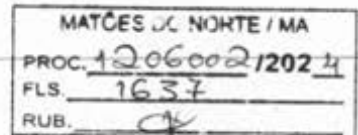 MATÕES DO NORTE / MA
PROC. 1206002 /202 4
FLS. 1637
RUB.